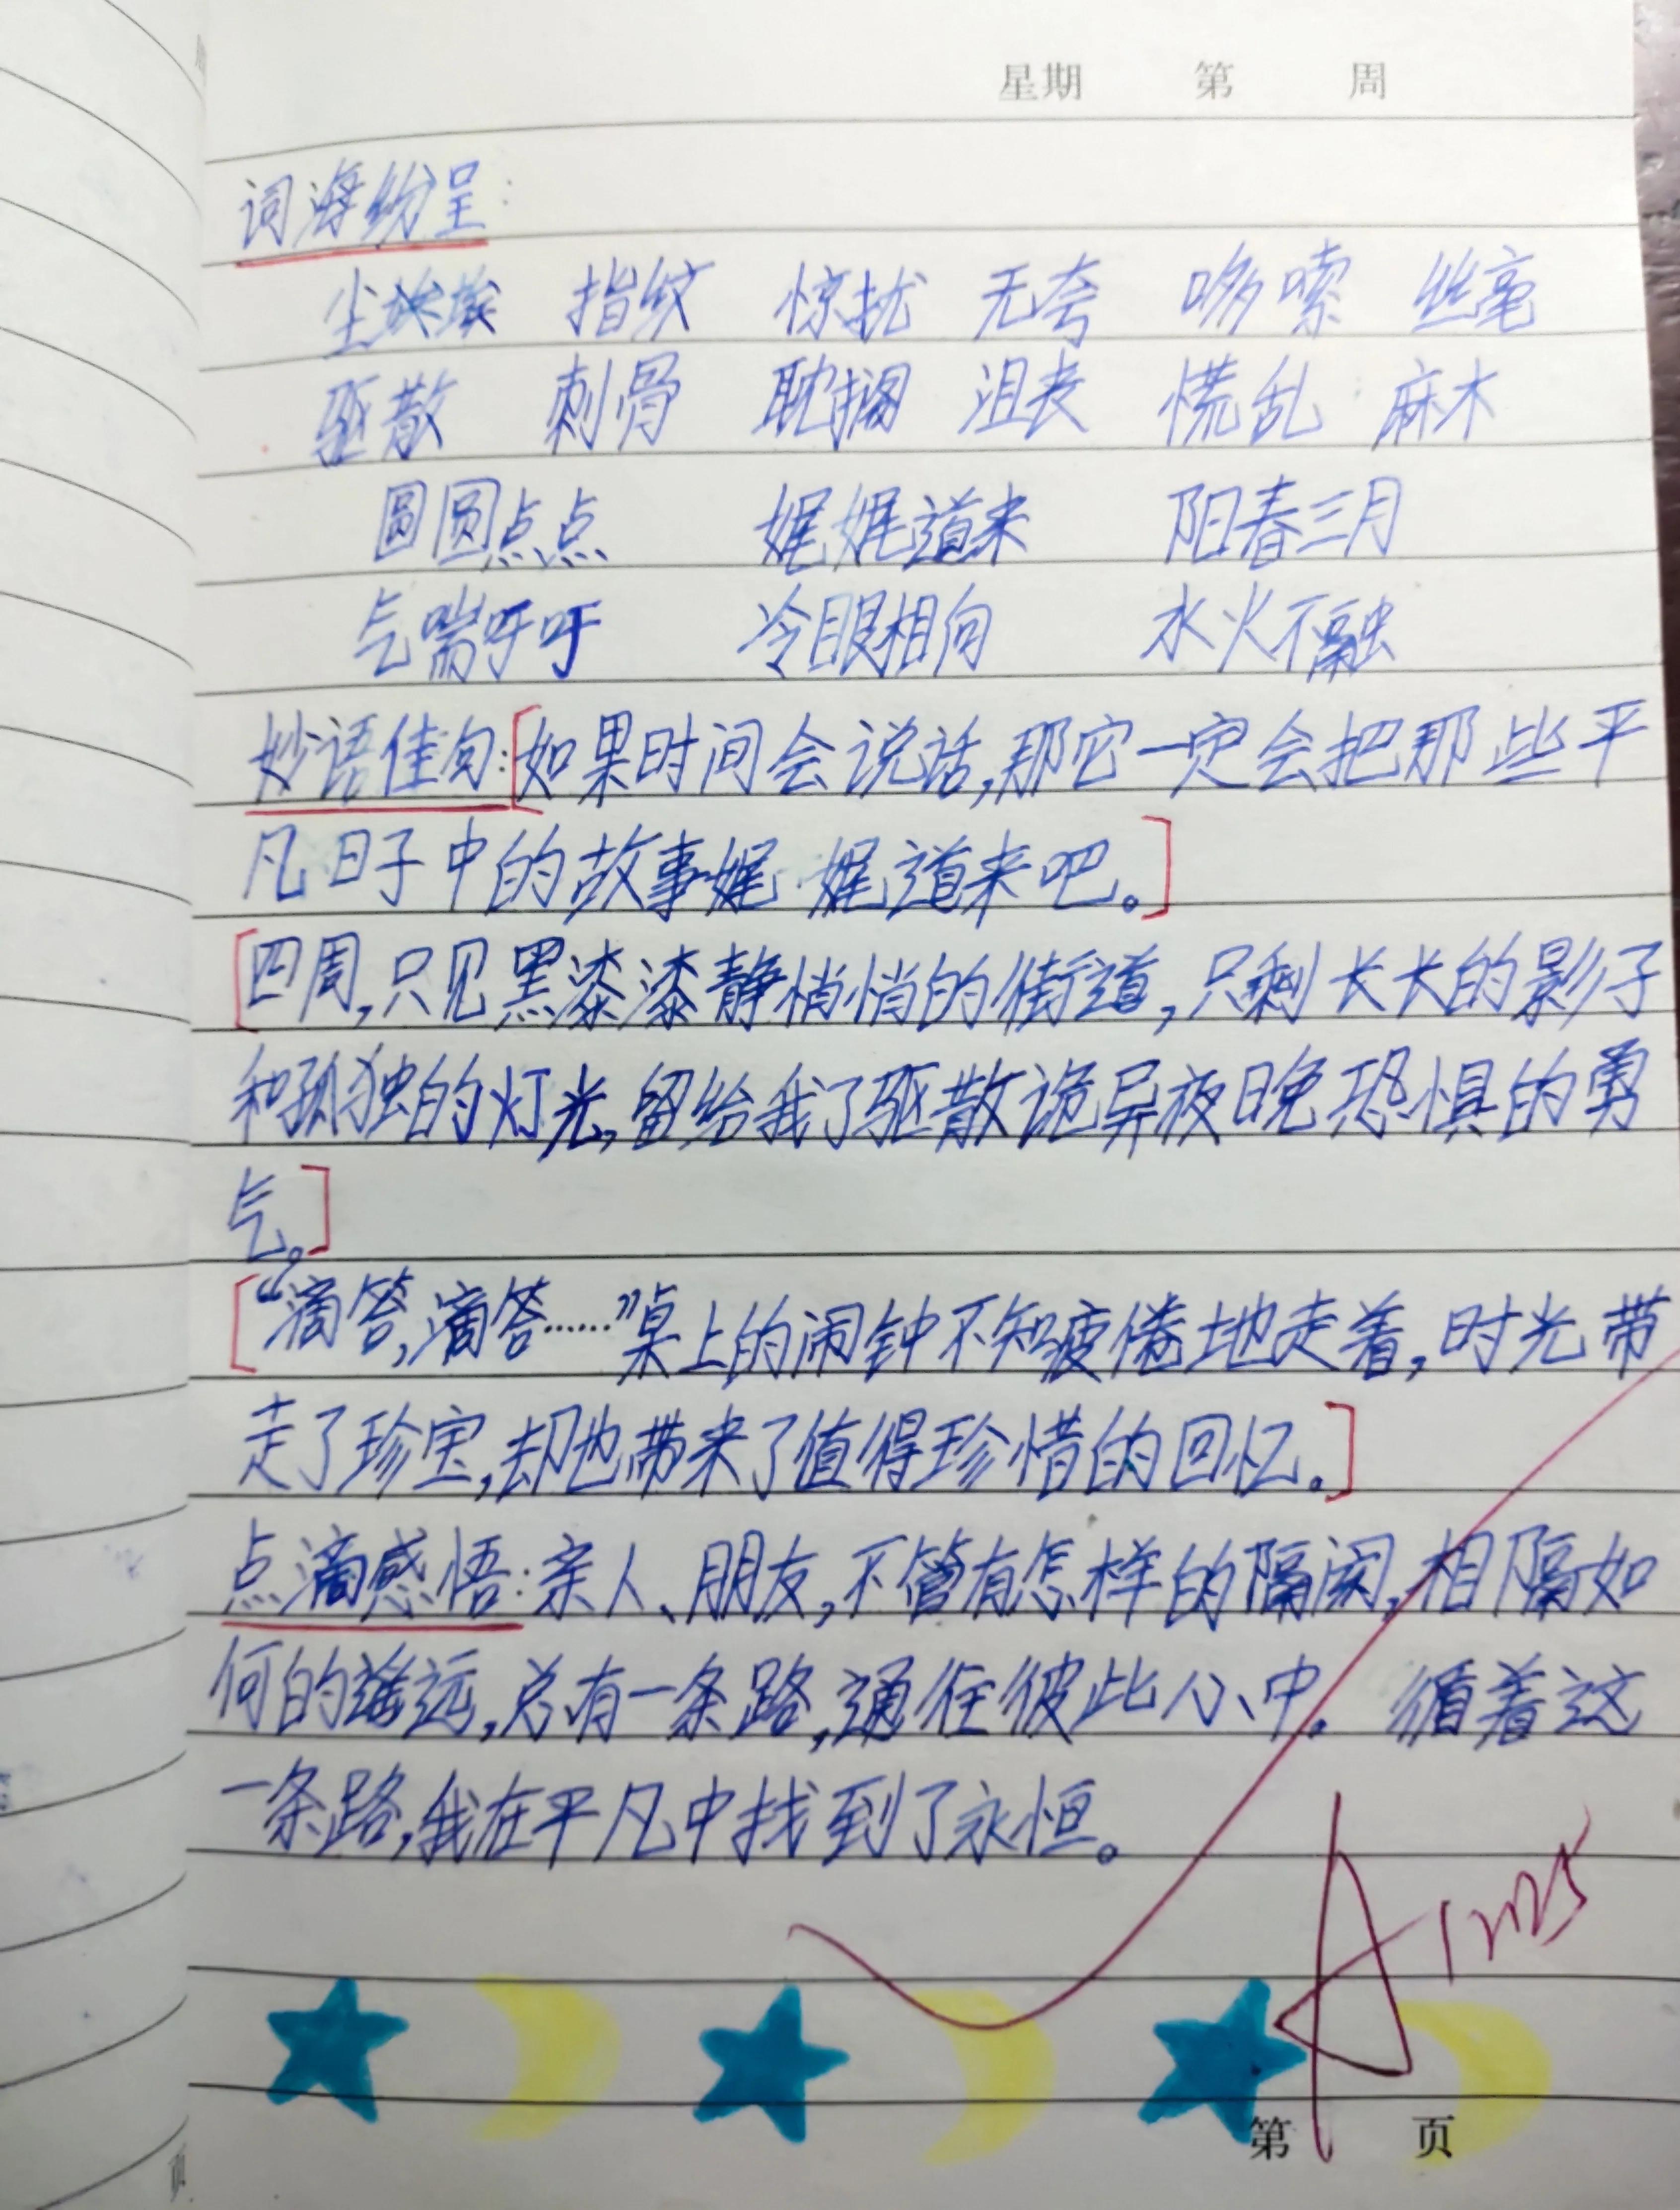 星期 第 周
词海纷呈:
尘埃 指纹 惊扰 无夸 哆嗦 丝毫
驱散 刺骨 耽搁 沮丧 慌乱 麻木
圆圆点点 娓娓道来 阳春三月
气喘吁吁 冷眼相向 水火不融
妙语佳句:[如果时间会说话,那它一定会把那些平
凡日子中的故事娓娓道来吧。]
[四周,只见黑漆漆静悄悄的街道,只剩长长的影子
和孤独的灯光,留给我了驱散诡异夜晚恐惧的勇
气。]
[“滴答,滴答……”桌上的闹钟不知疲倦地走着,时光带
走了珍宝,却也带来了值得珍惜的回忆。]
点滴感悟:亲人、朋友,不管有怎样的隔阂,相隔如
何的遥远,总有一条路,通往彼此心中。循着这
一条路,我在平凡中找到了永恒。
A
第 页